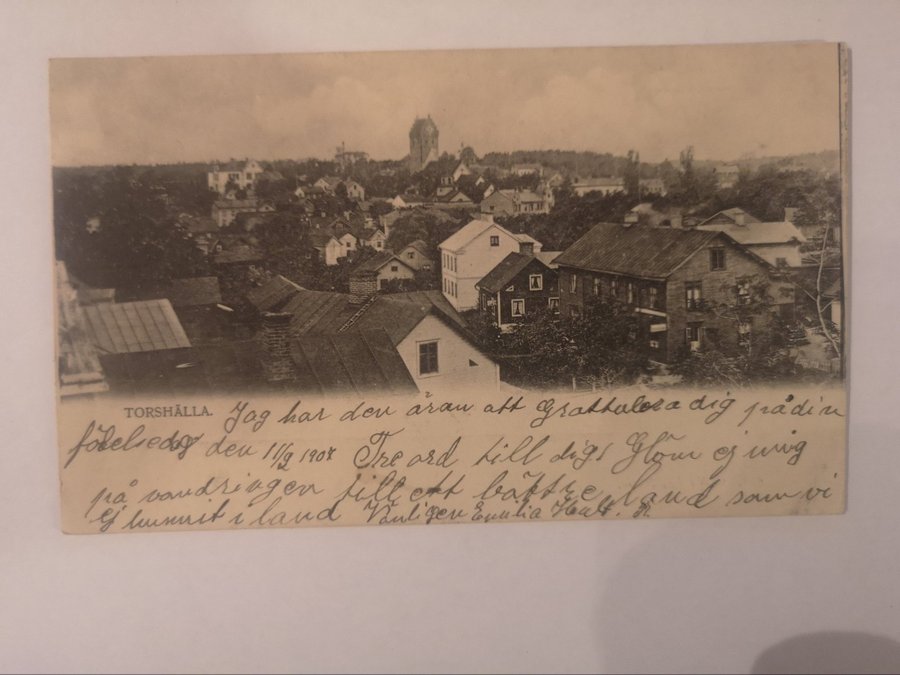 TORSHÄLLA.
Jag har den äran att Grattulera dig på din
födelsedag den 11/9 1907 Tre ord till digs Glöm ej mig
på vandringen till ett bättre land som vi
ej hunnit i land Vänligen Emilia